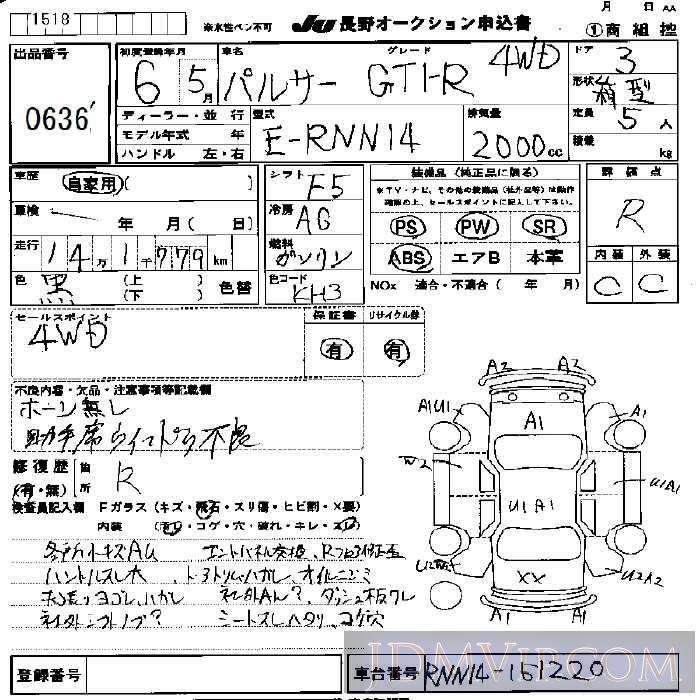 1518
※水性ペン不可
JU 長野オークション申込書
月 日 AA
①商 組 控
出品番号
0636
初度登録年月
6 5月
車名 グレード
パルサー GTI-R 4WD
ドア
3
形状
箱型
定員
5人
積載
kg
ディーラー・並 行
モデル年式 年
ハンドル 左・右
型式
E-RNN14
排気量
2000cc
車歴
自家用(
車検
年 月( 日)
走行
14万1千779km
色
黒
(上)
(下)
色替
シフト
F5
冷房
AC
燃料
ガソリン
色コード
KH3
装備品(純正品に限る)
※TV・ナビ、その他の装備品(社外品等)は動作
確認の上、セールスポイントに記入して下さい。
PS PW SR
ABS エアB 本革
NOx 適合・不適合( 年 月)
評価点
R
内装 外装
C C
セールスポイント
4WD
保証書 リサイクル券
有 有
不良内容・欠品・注意事項等記載欄
ホーン無し
助手席ウインドウ不良
修復歴
(有・無)
箇所
R
検査員記入欄 Fガラス(キズ・飛石・スリ傷・ヒビ割・×要)
内装 (汚レ・コゲ・穴・破れ・キレ・スレ)
各所小キズAU
ハンドルスレ大
シートスレ ヘタリ、コゲ穴
A2 A2
A1U1 A1 A1
W2 U1A1 U1A1
XX U2A2
A1 A1
登録番号
車台番号 RNN14-151220
JDMVIP.COM